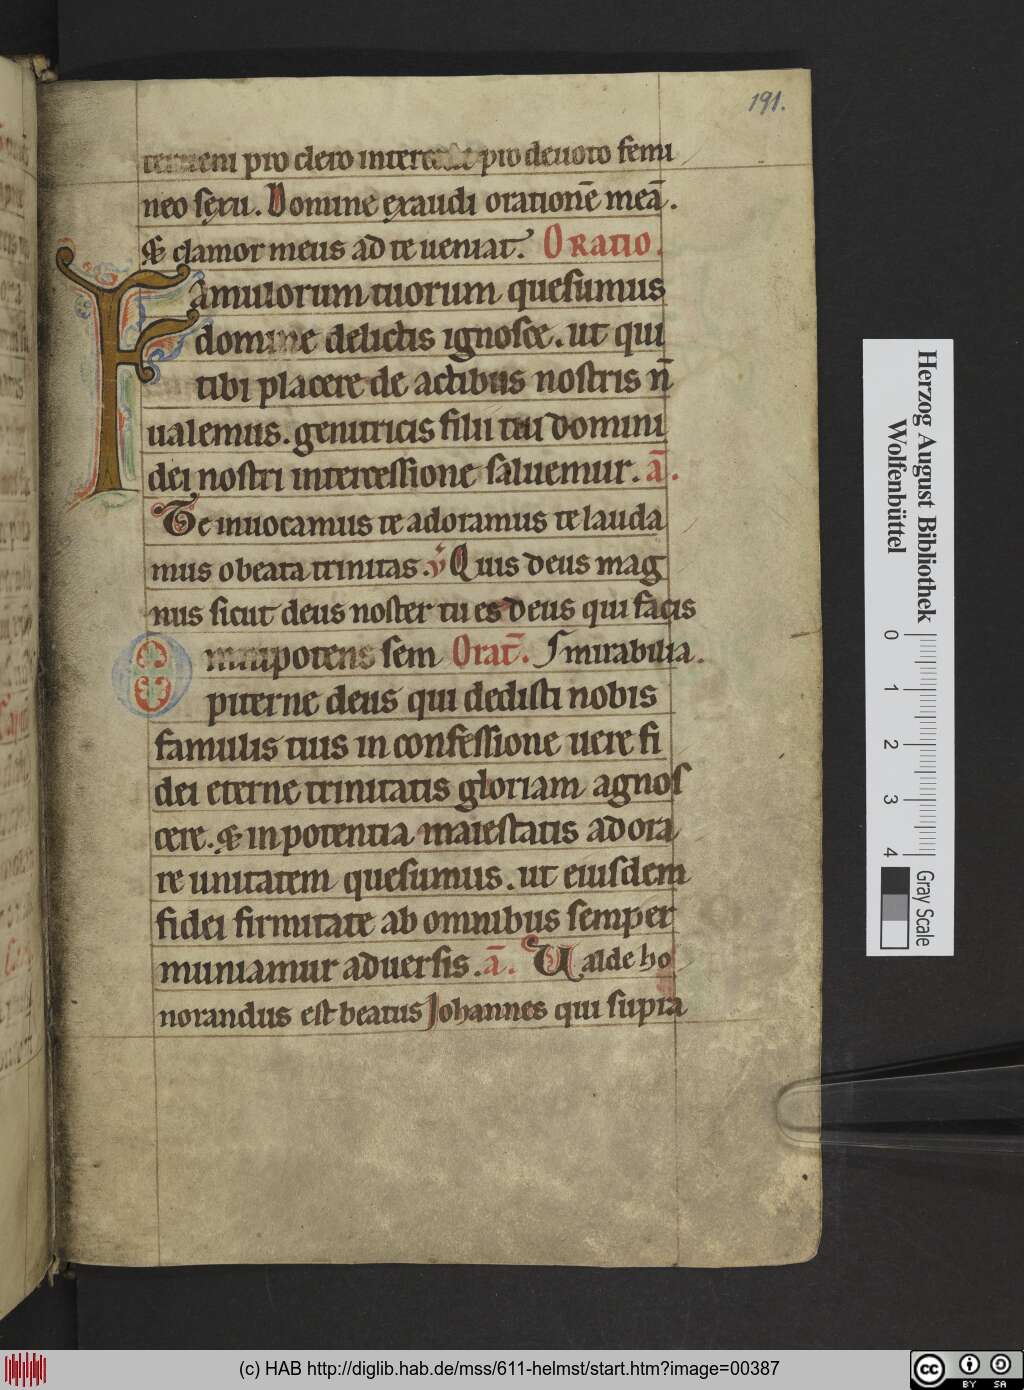 191.
terueni pro clero intercede pro deuoto femi
neo sexu. Domine exaudi orationē meā.
& clamor meus ad te ueniat. Oratio.
Famulorum tuorum quesumus
domine delictis ignosce. ut qui
tibi placere de actibus nostris n̄
ualemus. genitricis filii tui domini
dei nostri intercessione saluemur. ā.
Te inuocamus te adoramus te lauda
mus o beata trinitas. v̇ Quis deus mag
nus sicut deus noster tu es deus qui facis
Omnipotens sem Orat̄. S mirabilia.
piterne deus qui dedisti nobis
famulis tuis in confessione uere fi
dei eterne trinitatis gloriam agnos
cere. & in potentia maiestatis adora
re unitatem quesumus. ut eiusdem
fidei firmitate ab omnibus semper
muniamur aduersis. ā. Ualde ho
norandus est beatus Johannes qui supra
Herzog August Bibliothek
Wolfenbüttel
0 1 2 3 4
Gray Scale
(c) HAB http://diglib.hab.de/mss/611-helmst/start.htm?image=00387
cc BY SA